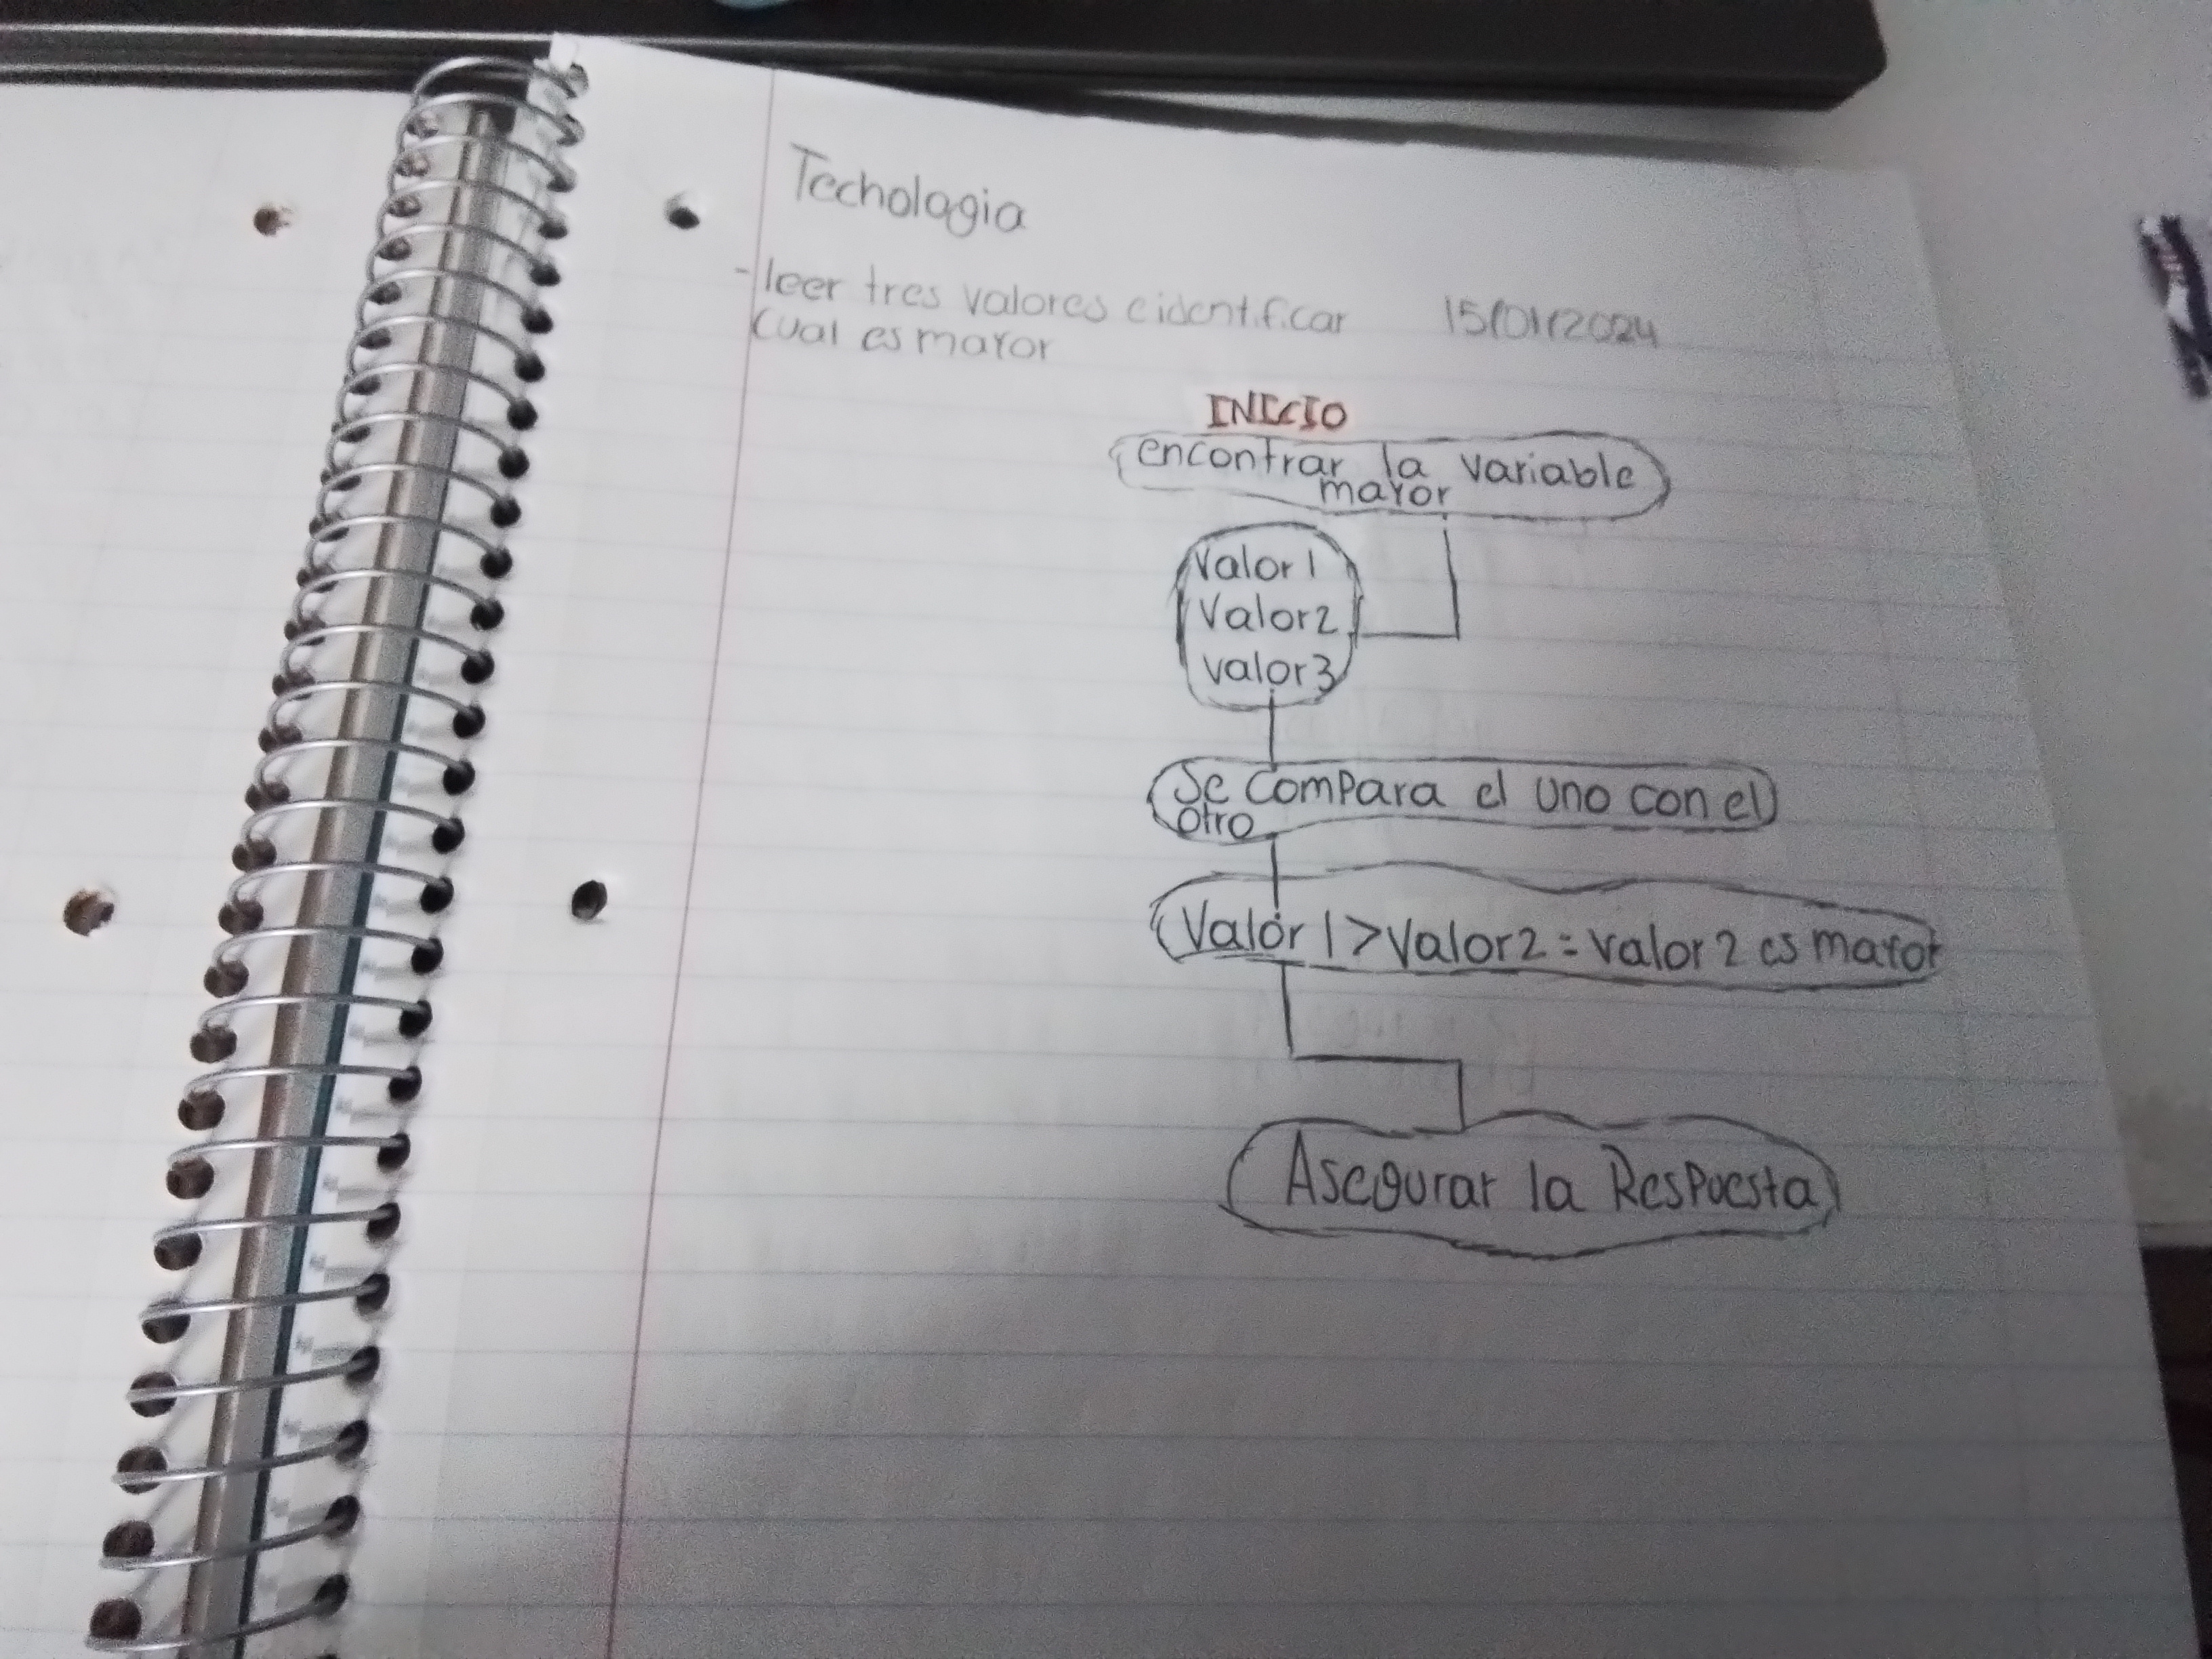 Techologia
-leer tres valores e identificar 15/01/2024
cual es mayor
INICIO
encontrar la variable
mayor
Valor 1
Valor 2
valor 3
Se compara el uno con el
otro
Valor 1 > valor 2 = valor 2 es mayor
Asegurar la Respuesta